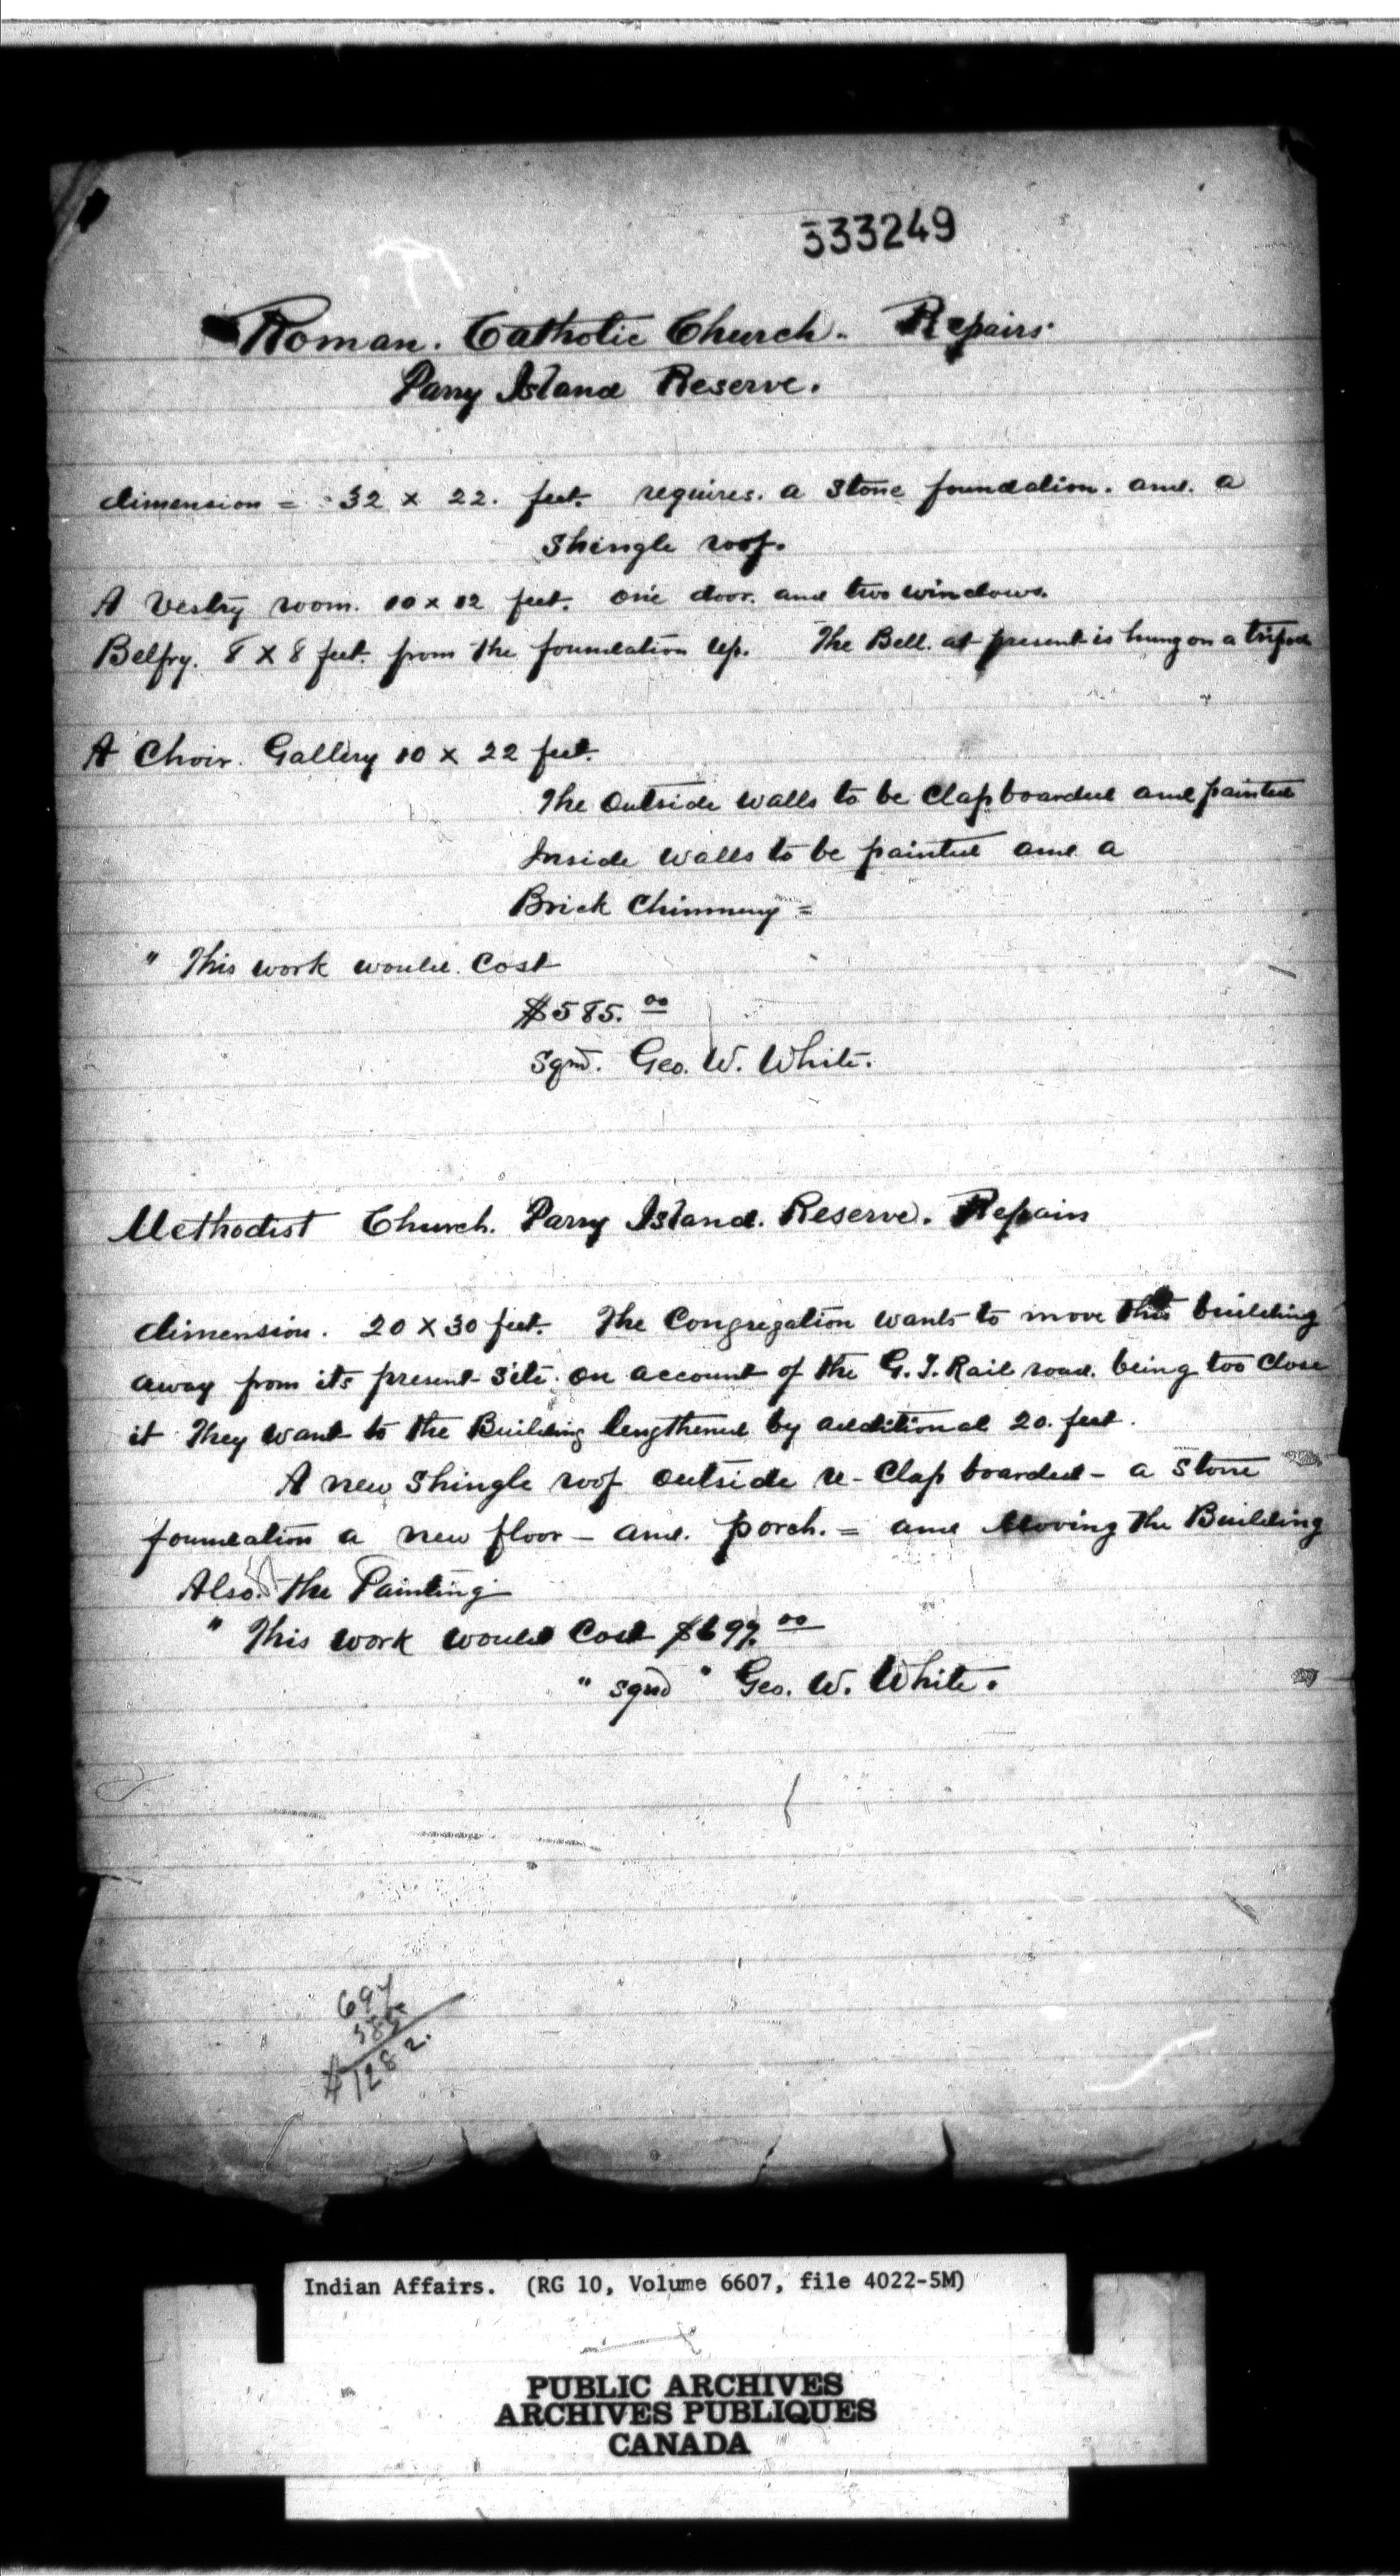 333249
Roman. Catholic Church. Repairs.
Parry Island Reserve.
dimension = 32 x 22. feet. requires. a Stone foundation. and. a
Shingle roof.
A Vestry room. 10 x 12 feet. one door. and two windows.
Belfry. 8 x 8 feet. from the foundation up. The Bell. at present is hung on a tripod
A Choir. Gallery 10 x 22 feet.
The Outside walls to be Clapboarded and painted
Inside walls to be painted and a
Brick Chimney =
" This work would. Cost
$585. 00
Sgnd. Geo. W. White.
Methodist Church. Parry Island. Reserve. Repairs
dimension. 20 x 30 feet. The Congregation wants to move this building
away from its present site. on account of the G.T. Rail road. being too close
it They want to the Building lengthened by additional 20. feet.
A new Shingle roof outside re-Clap boarded - a Stone
foundation a new floor - and. porch. = and Moving the Building
Also. the Painting
" This work would Cost $697. 00
" sgnd " Geo. W. White.
697
585
$1282.
Indian Affairs. (RG 10, Volume 6607, file 4022-5M)
PUBLIC ARCHIVES
ARCHIVES PUBLIQUES
CANADA